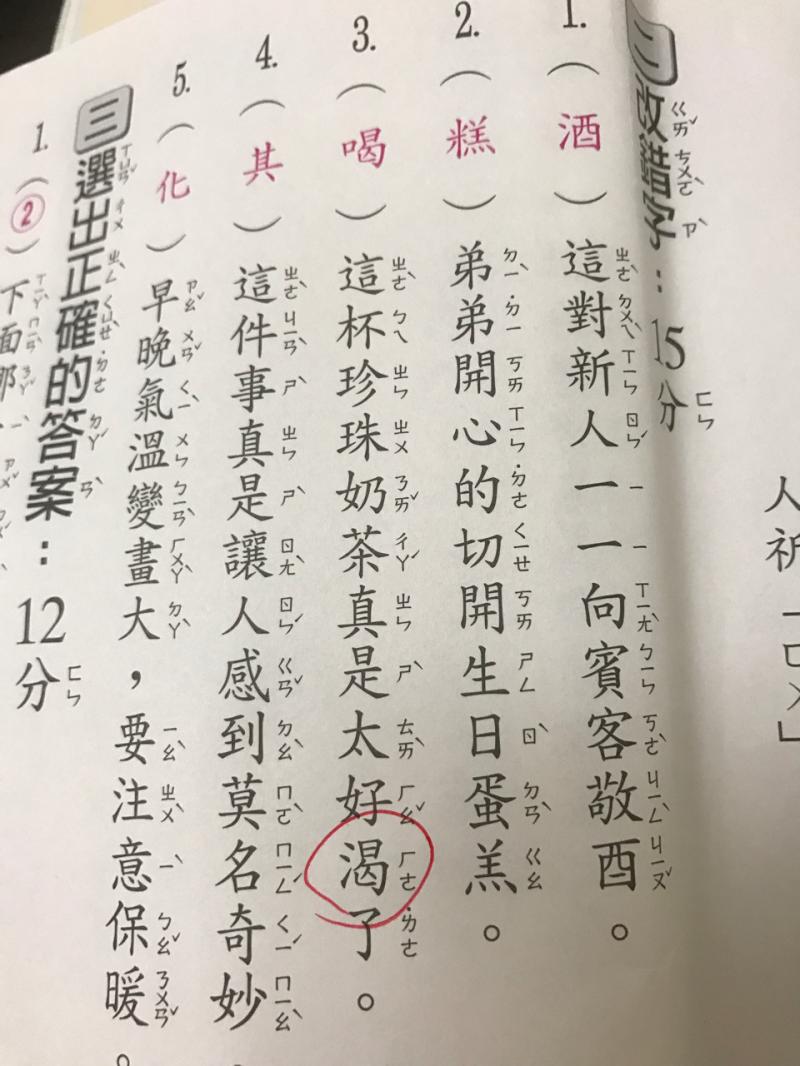 人祈「ㄈㄨ」
二改錯字：15分
1.（酒）這對新人一一向賓客敬酉。
2.（糕）弟弟開心的切開生日蛋羔。
3.（喝）這杯珍珠奶茶真是太好渴了。
4.（其）這件事真是讓人感到莫名奇妙
5.（化）早晚氣溫變畫大，要注意保暖。
三選出正確的答案：12分
1.（②）下面那